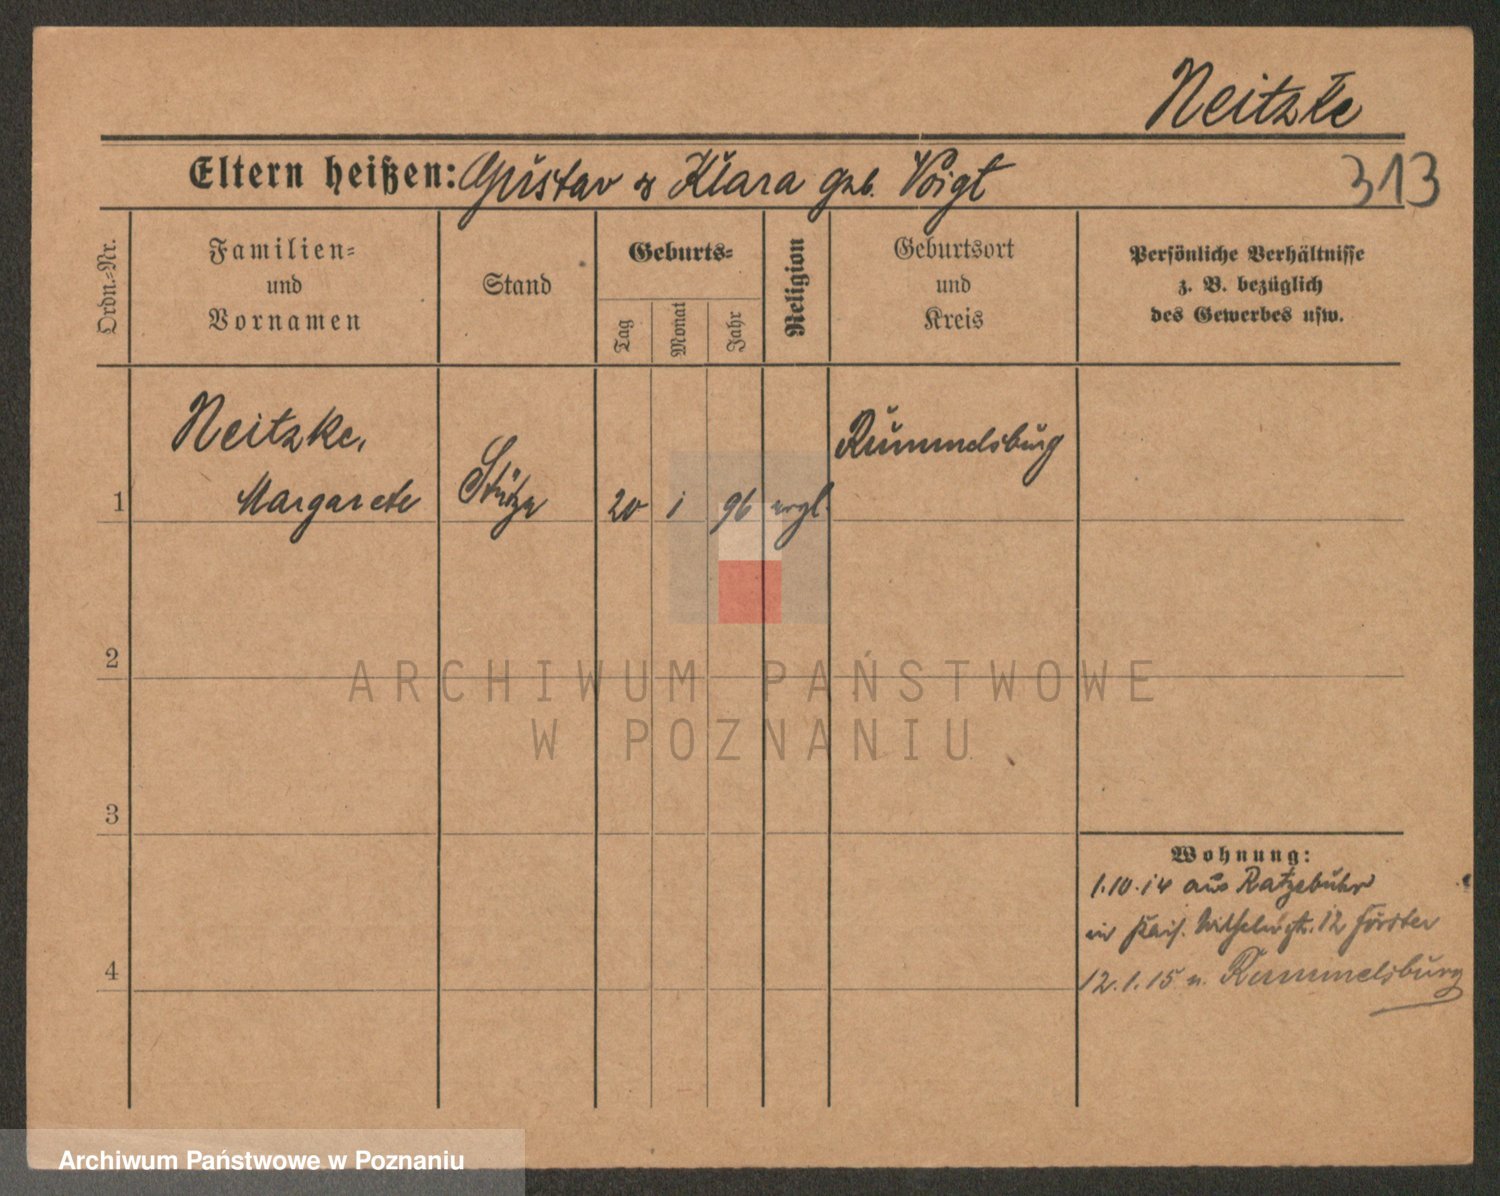 Neitzke
Eltern heißen: Gustav & Klara geb. Voigt
313
Ordn.=Nr.
Familien=
und
Vornamen
Stand
Geburts=
Tag
Monat
Jahr
Religion
Geburtsort
und
Kreis
Persönliche Verhältnisse
z. B. bezüglich
des Gewerbes usw.
1
Neitzke,
Margarete
Stütze
20
1
96
evgl.
Rummelsburg
2
ARCHIWUM PAŃSTWOWE
W POZNANIU
3
Wohnung:
1.10.14 aus Ratzebuhr
in Kais. Wilhelmstr. 12 Förster
4
12.1.15 n. Rummelsburg
Archiwum Państwowe w Poznaniu